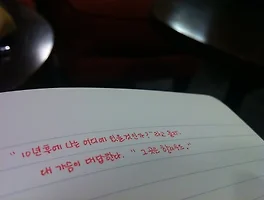 "10년후에 나는 어디에 있을것인가?" 라고 물
내 가슴이 대답한다. "그곳은